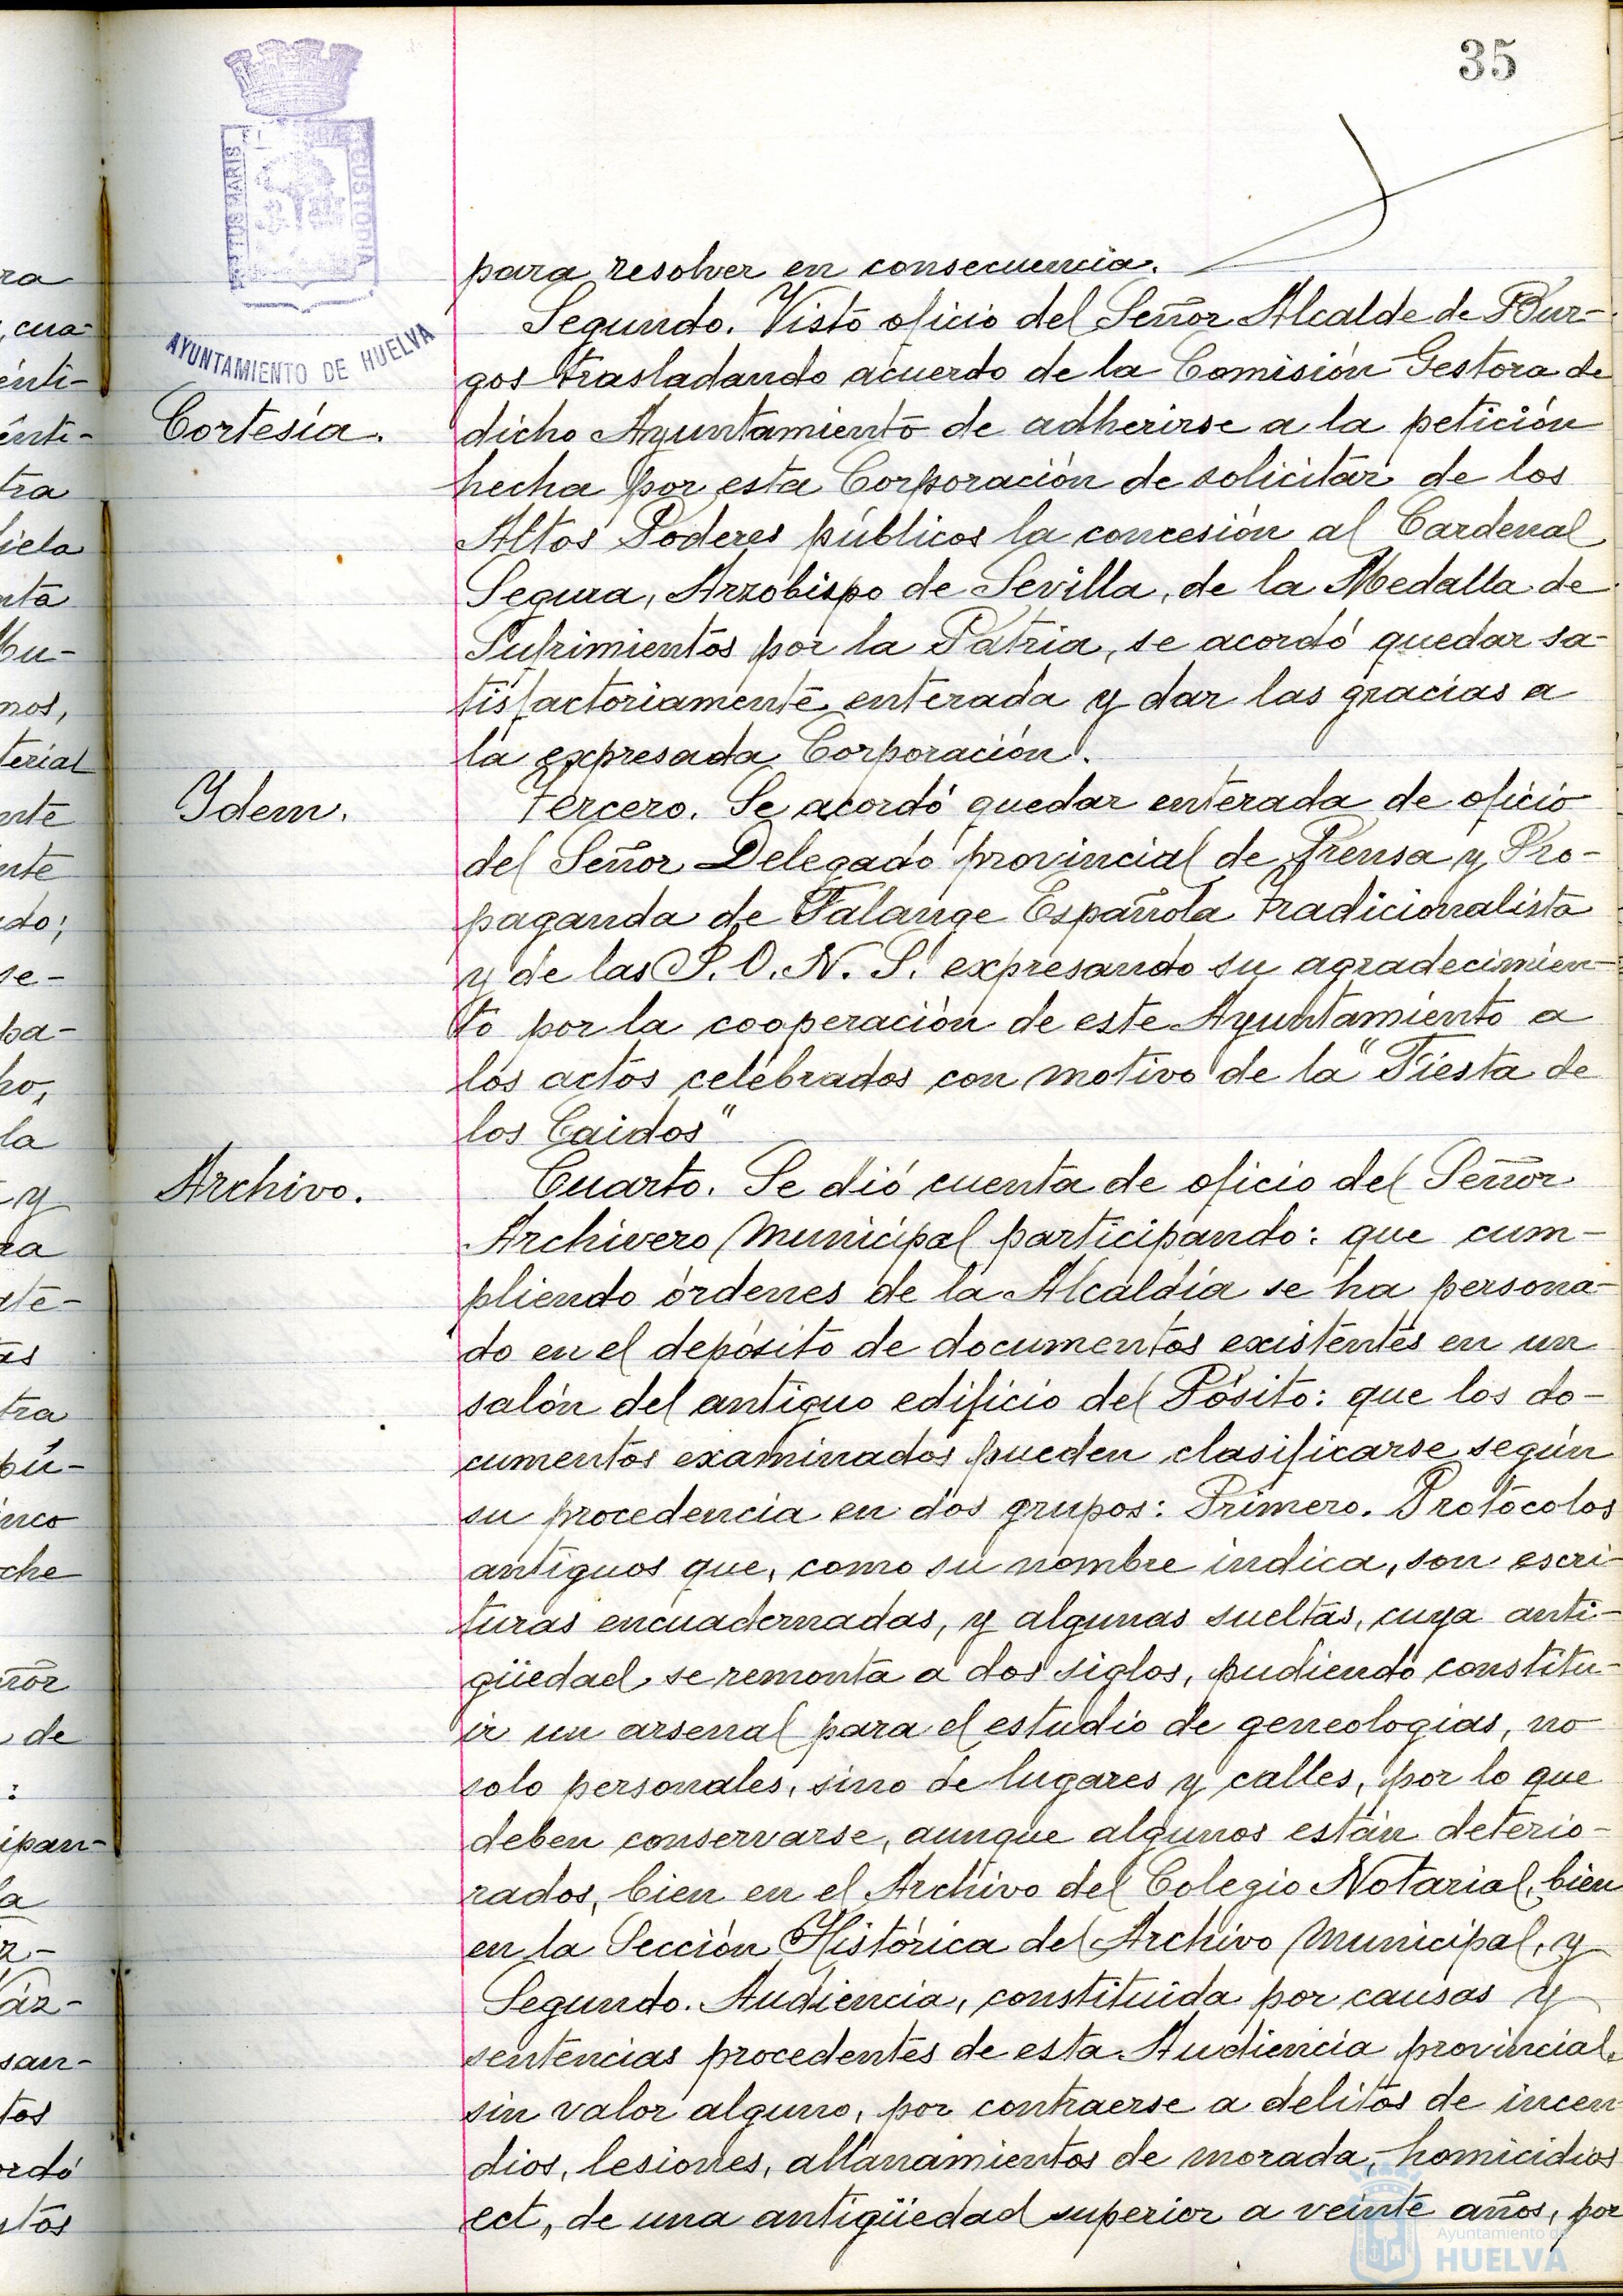 35
PORTUS MARIS ET TERRAE CUSTODIA
AYUNTAMIENTO DE HUELVA
para resolver en consecuencia.
Segundo. Visto oficio del Señor Alcalde de Bur-
gos trasladando acuerdo de la Comisión Gestora de
Cortesía.
dicho Ayuntamiento de adherirse a la petición
hecha por esta Corporación de solicitar de los
Altos Poderes públicos la concesión al Cardenal
Segura, Arzobispo de Sevilla, de la Medalla de
Sufrimientos por la Patria, se acordó quedar sa-
tisfactoriamente enterada y dar las gracias a
la expresada Corporación.
Ydem.
Tercero. Se acordó quedar enterada de oficio
del Señor Delegado provincial de Prensa y Pro-
paganda de Falange Española Tradicionalista
y de las J. O. N. S. expresando su agradecimien-
to por la cooperación de este Ayuntamiento a
los actos celebrados con motivo de la "Fiesta de
los Caidos"
Archivo.
Cuarto. Se dió cuenta de oficio del Señor
Archivero Municipal participando: que cum-
pliendo órdenes de la Alcaldía se ha persona-
do en el depósito de documentos existentes en un
salón del antiguo edificio del Pósito: que los do-
cumentos examinados pueden clasificarse según
su procedencia en dos grupos: Primero. Protocolos
antiguos que, como su nombre indica, son escri-
turas encuadernadas, y algunas sueltas, cuya anti-
güedad se remonta a dos siglos, pudiendo constitu-
ir un arsenal para el estudio de geneologias, no
solo personales, sino de lugares y calles, por lo que
deben conservarse, aunque algunos están deterio-
rados, bien en el Archivo del Colegio Notarial, bien
en la Sección Histórica del Archivo Municipal, y
Segundo. Audiencia, constituida por causas y
sentencias procedentes de esta Audiencia provincial,
sin valor alguno, por contraerse a delitos de incen
dios, lesiones, allanamientos de morada, homicidios
ect, de una antigüedad superior a veinte años, por
Ayuntamiento de
HUELVA